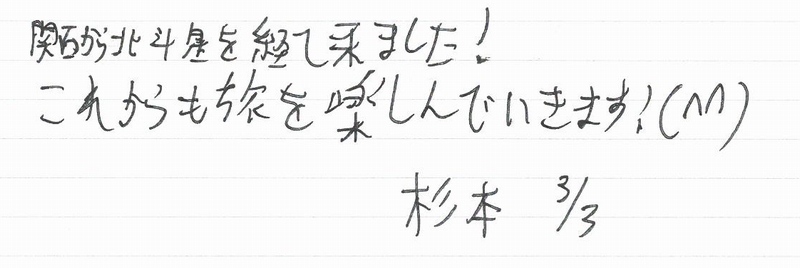 関西から北斗星を経て来ました！
これからも旅を楽しんでいきます！(^^)
杉本 3/3